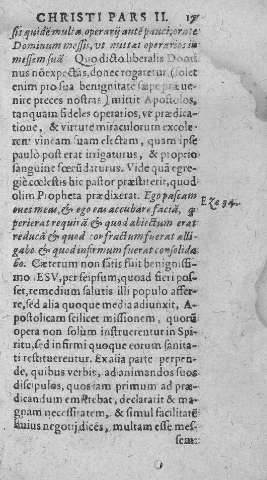 CHRISTI PARS II. 17
sis quidē multæ, operarij autē pauci, orate
Dominum messis, vt mittat operarios in
messem suā. Quo dicto liberalis Domi
nus nō expectās, donec rogaretur (solet
enim pro sua benignitate sæpe præue-
nire preces nostras) mittit Apostolos,
tanquam fideles operarios, vt prædica
tione, & virtute miraculorum excole-
rent vineam suam electam, quam ipse
paulò post erat irrigaturus, & proprio
sanguine fœcūdaturus. Vide quā egre-
giè cœlestis hic pastor præstiterit, quod
olim Propheta prædixerat. Ego pascam
oues meas, & ego eas accubare faciā, q
perierat requirā & quod abiectum erat
reducā & quod confractum fuerat alli-
gabo & quod infirmum fuerat consolida
bo. Cæterum non satis fuit benignissi-
mo IESV, per seipsum, quoad fieri pos-
set, remedium salutis illi populo affer-
re, sed alia quoque media adiunxit, A-
postolicam scilicet missionem, quorū
opera non solum instruerentur in Spi-
ritu, sed infirmi quoque eorum sanita-
ti restituerentur. Ex alia parte perpen-
de, quibus verbis, ad animandos suos
discipulos, quos iam primum ad præ-
dicandum emittebat, declarit & ma-
gnam necessitatem, & simul facilitatē
huius negotij, dicēs, multam esse mes-
sem:
Eze 34.